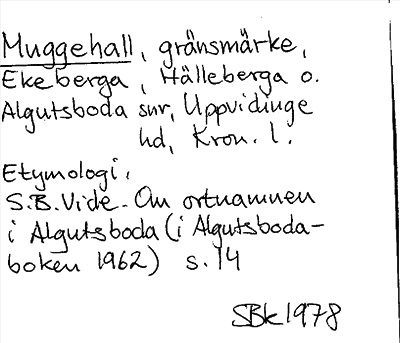 Muggehall, gränsmärke,
Ekeberga, Hälleberga o.
Algutsboda snr, Uppvidinge
hd, Kron. l.
Etymologi.
S.B. Vide. Om ortnamnen
i Algutsboda (i Algutsboda-
boken 1962) s. 14
SBk 1978